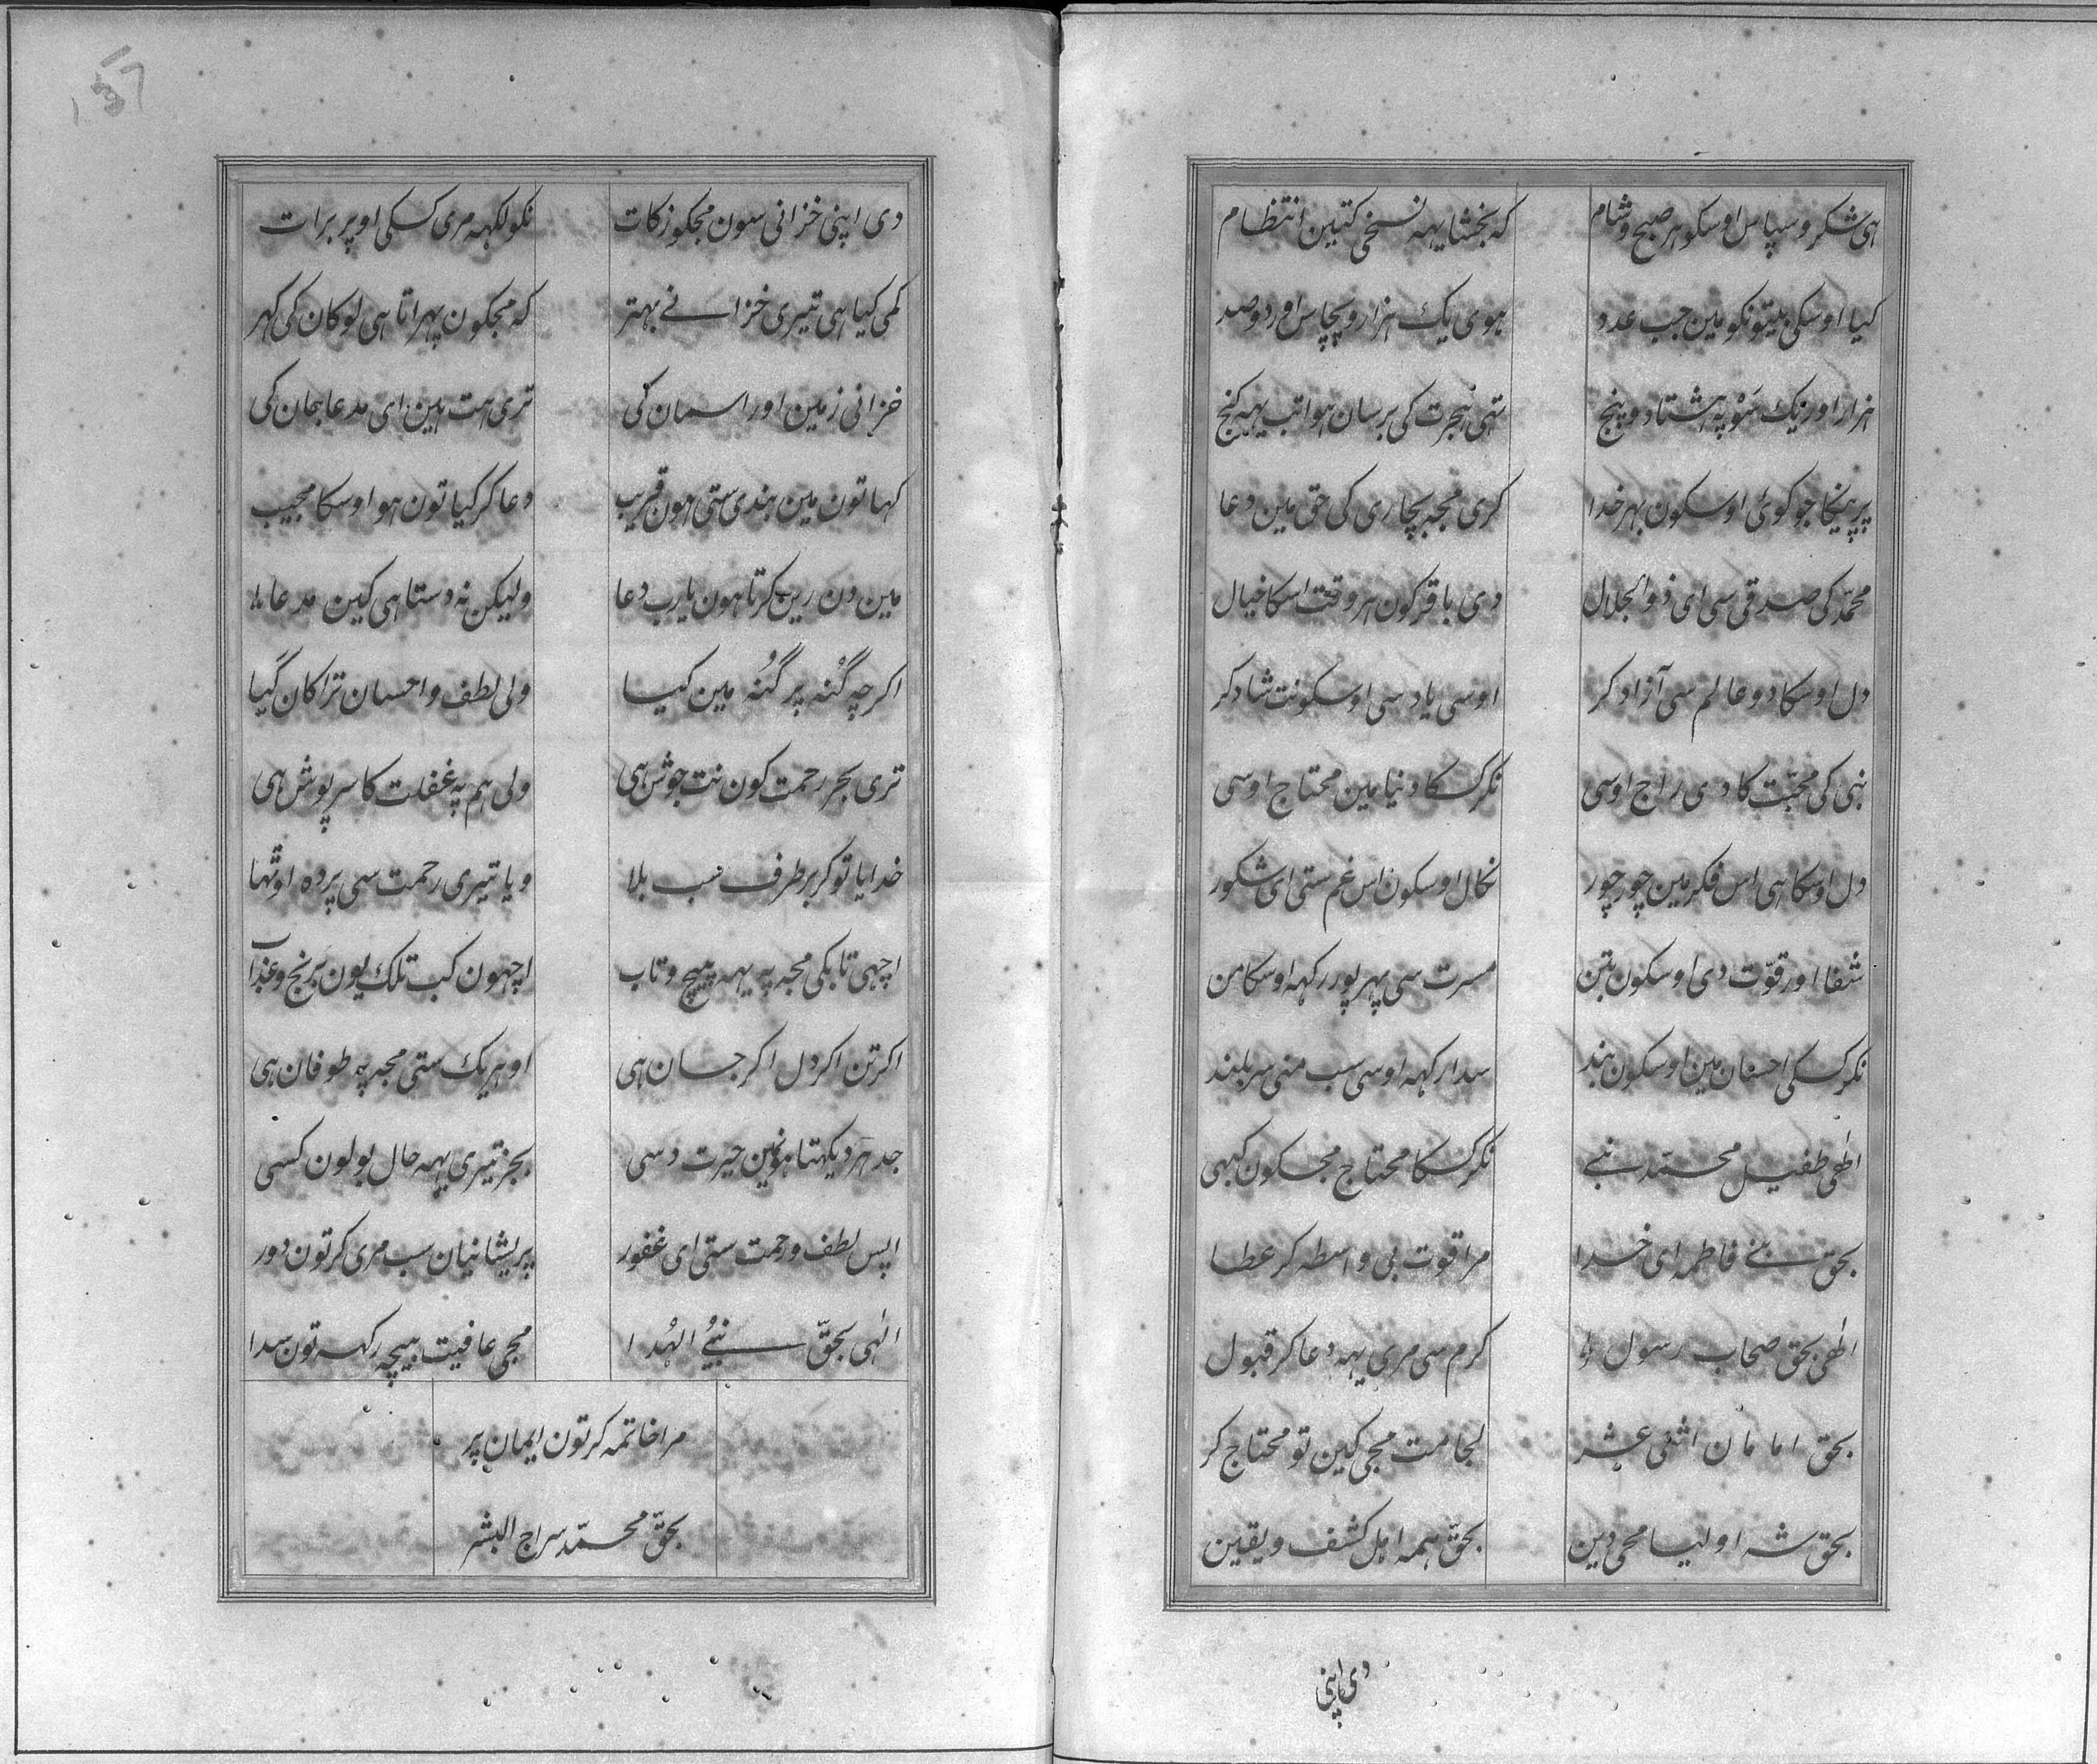 ہی شکر و سپاس اوسکو ہر صبح و شام کہ بخشا یہہ نسخی کتین انتظام
کیا اوسکی بیتونکو مین جب عدد ہوی یک ہزار و پچاس اور دو صد
ہزار اور یک سَوْ پہ ہشتاد و پنج تہی ہجرت کی برسان ہوا تب یہہ کنج
پرہنیکا جو کوئی اوسکون بہر خدا کری مجہ بچاری کی حق مین دعا
محمد کی صدقی سی ای ذوالجلال دی باقر کون ہر وقت اسکا خیال
دل اوسکا دو عالم سی آزاد کر اوسی یاد سی اوسکو نت شاد کر
نبی کی محبّت کا دی راج اوسی نکر کسکا دنیا مین محتاج اوسی
دل اوسکا ہی اس فکر مین چور چور نکال اوسکون اس غم ستی ای شکور
شفا اور قوّت دی اوسکون بتن مسرت سی بہرپور رکہہ اوسکا من
نکر کسکی احسان مین اوسکون بند سدا رکہہ اوسی سب منی سر بلند
الٰھی طفیل محمّد نبے نکر کسکا محتاج مجکون کہی
بحق بنے فاطمہ ای خدا مرا قوت بی واسطہ کر عطا
الٰھی بحق صحاب رسول کرم سی مری یہہ دعا کر قبول
بحق امامان اثنی عشر لجا مت مجی کین تو محتاج کر
بحق شہ اولیا محی دین بحقّ ہمہ اہل کشف و یقین
دی اپنی
دی اپنی خزانی سون مجکو زکات نکو لکہہ مری کسکی اوپر برات
کمی کیا ہی تیری خزانے بہتر کہ مجکون پہراتا ہی لوکان کی کہر
خزانی زمین اور اسمان کی تری ہت مین ای مدعا جان کی
کہا تون مین بندی ستی ہون قریب دعا کر کیا تون ہو اوسکا مجیب
مین دن رین کرتا ہون یا رب دعا ولیکن نہ دستا ہی کین مدعا
اکرچہ گُنہ پر گُنہ مین کیا ولی لطف و احسان ترا کان گیا
تری بحر رحمت کون نت جوش ہی ولی ہم پہ غفلت کا سرپوش ہی
خدایا تو کر برطرف سب بلا و یا تیری رحمت سی پردہ اوٹہا
اچہی تا بکی مجہ پہ یہہ پیچ و تاب اچہون کب تلک یون برنج و عذاب
اکر تن اکر دل اکر جان ہی او ہر یک ستی مجہ پہ طوفان ہی
جدہر دیکہتا ہونمین حیرت دسی بجز تیری یہہ حال بولون کسی
اپس لطف و رحمت ستی ای غفور پریشانیان سب مری کر تون دور
الٰہی بحقّ نبےُ الہُدا مجی عافیت بیچہ رکہہ تون سدا
مرا خاتمہ کر تون ایمان پر
بحقّ محمّد سراج البشر